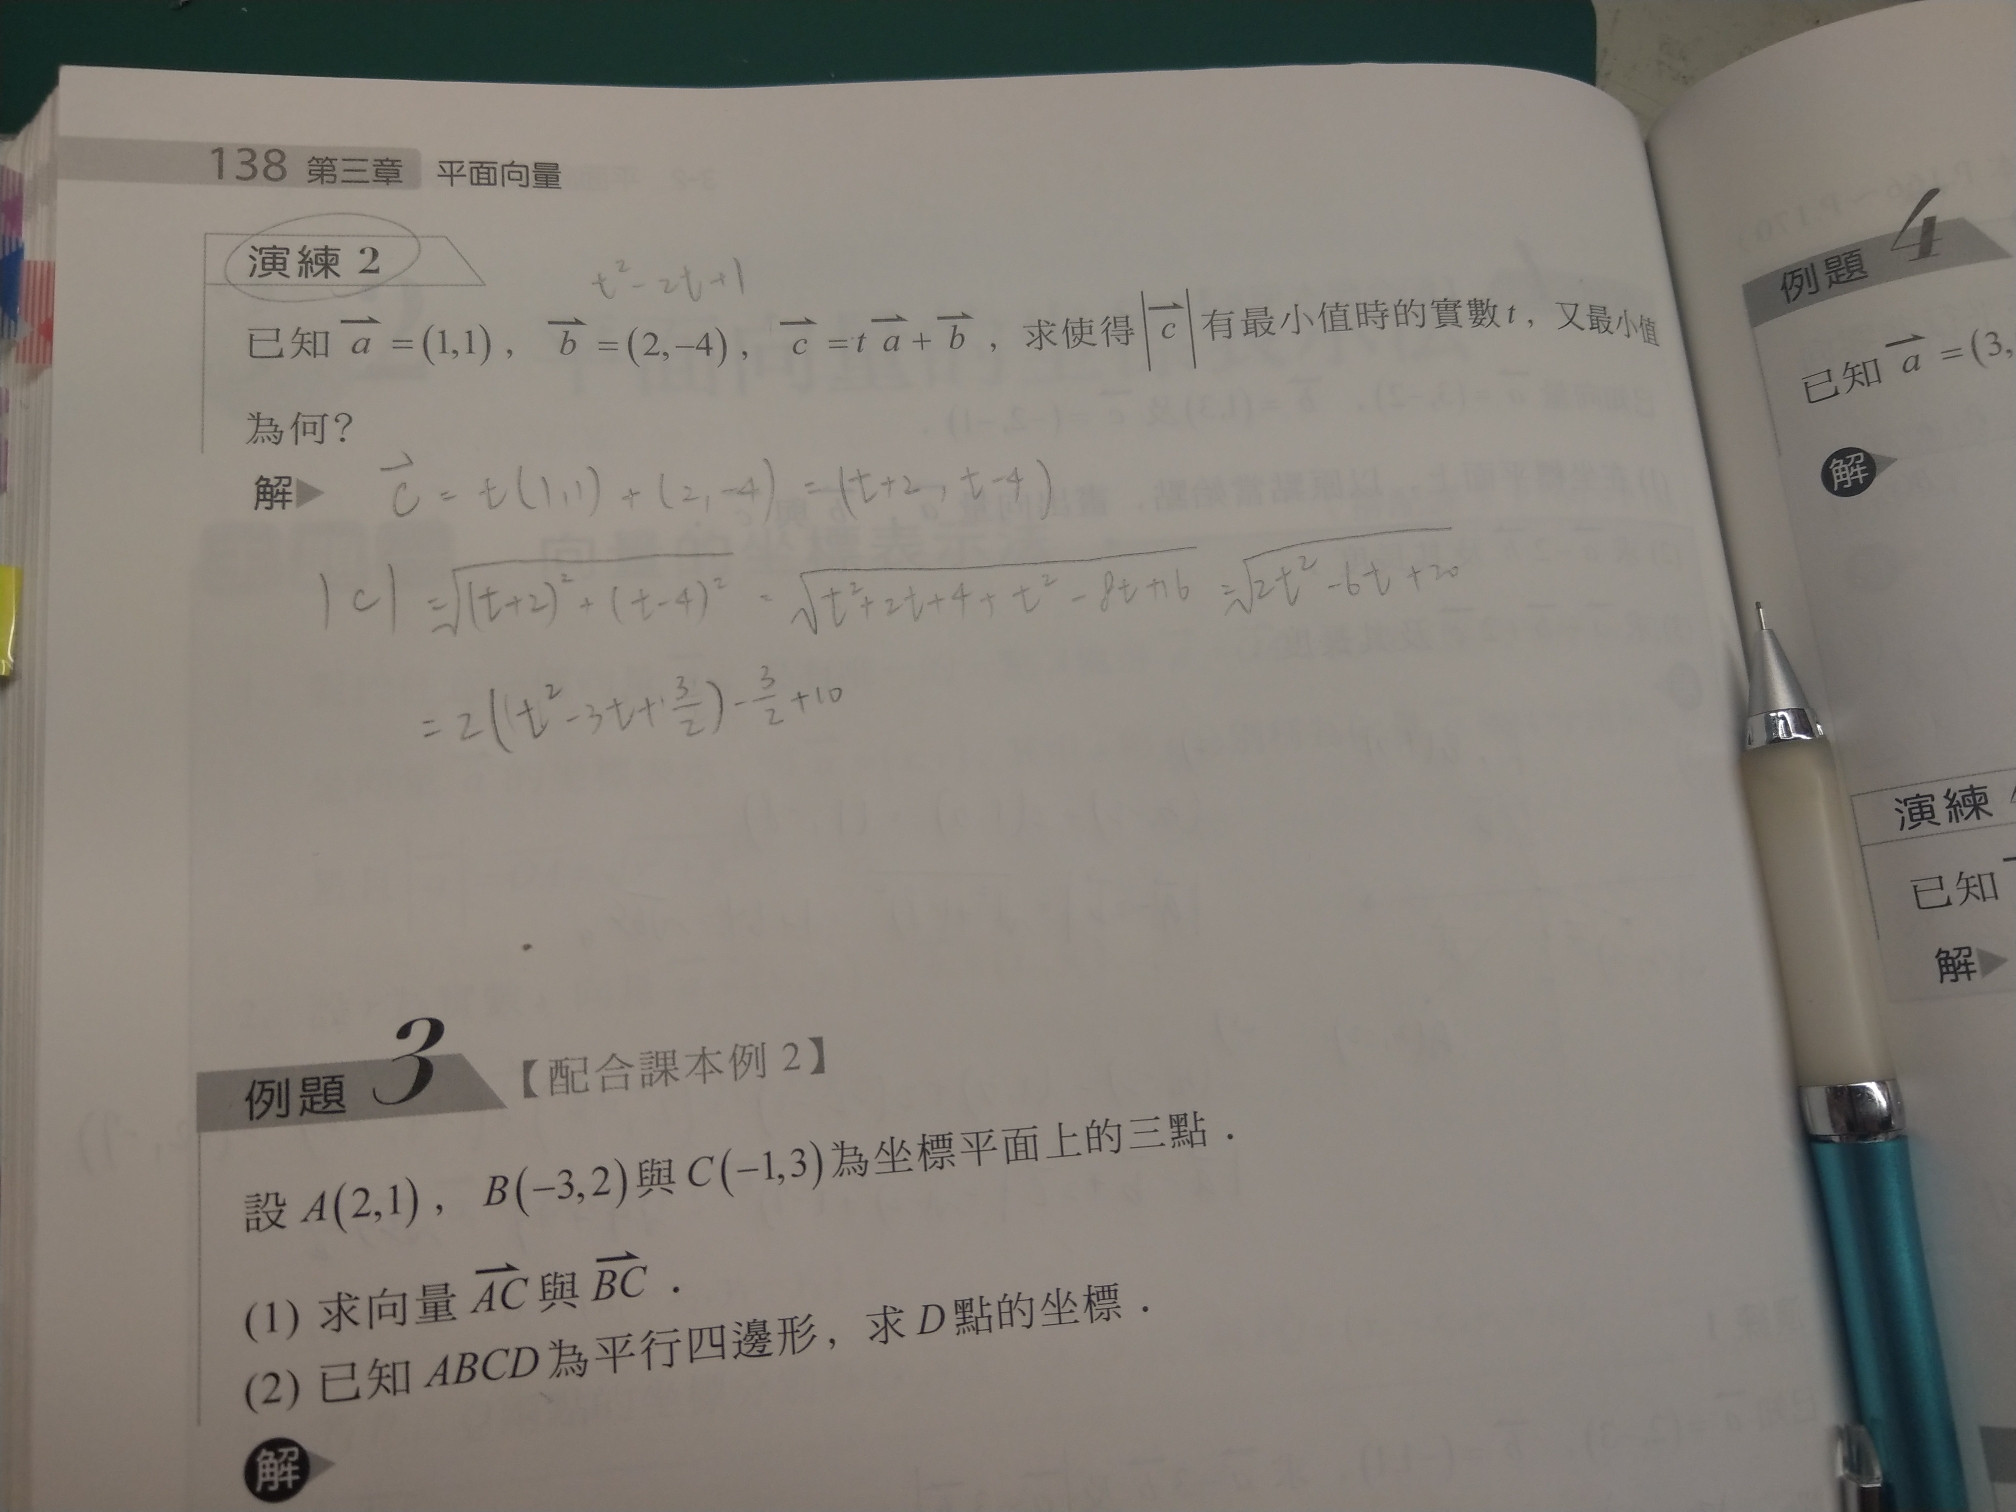 138 第三章 平面向量
演練 2
t² - 2t + 1
已知 a⃗ = (1,1), b⃗ = (2,−4), c⃗ = t a⃗ + b⃗, 求使得 |c⃗| 有最小值時的實數 t, 又最小值
為何?
解 c⃗ = t(1,1) + (2,-4) = (t+2, t-4)
|c| = √((t+2)² + (t-4)²) = √(t²+2t+4+t²-8t+16) = √(2t²-6t+20)
= 2(t²-3t+3/2) - 3/2 + 10
例題 3 【配合課本例 2】
設 A(2,1), B(−3,2) 與 C(−1,3) 為坐標平面上的三點.
(1) 求向量 AC⃗ 與 BC⃗.
(2) 已知 ABCD 為平行四邊形, 求 D 點的坐標.
解
例題 4
已知 a⃗ = (3,
解
演練
已知
解